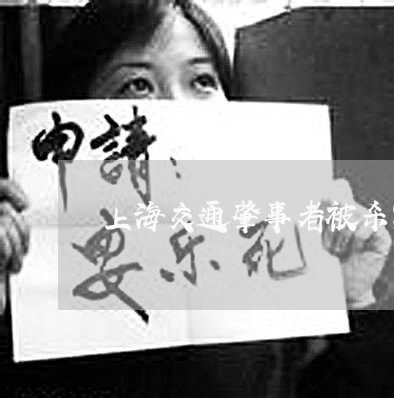 申請：
上海交通肇事者被杀
要乐死